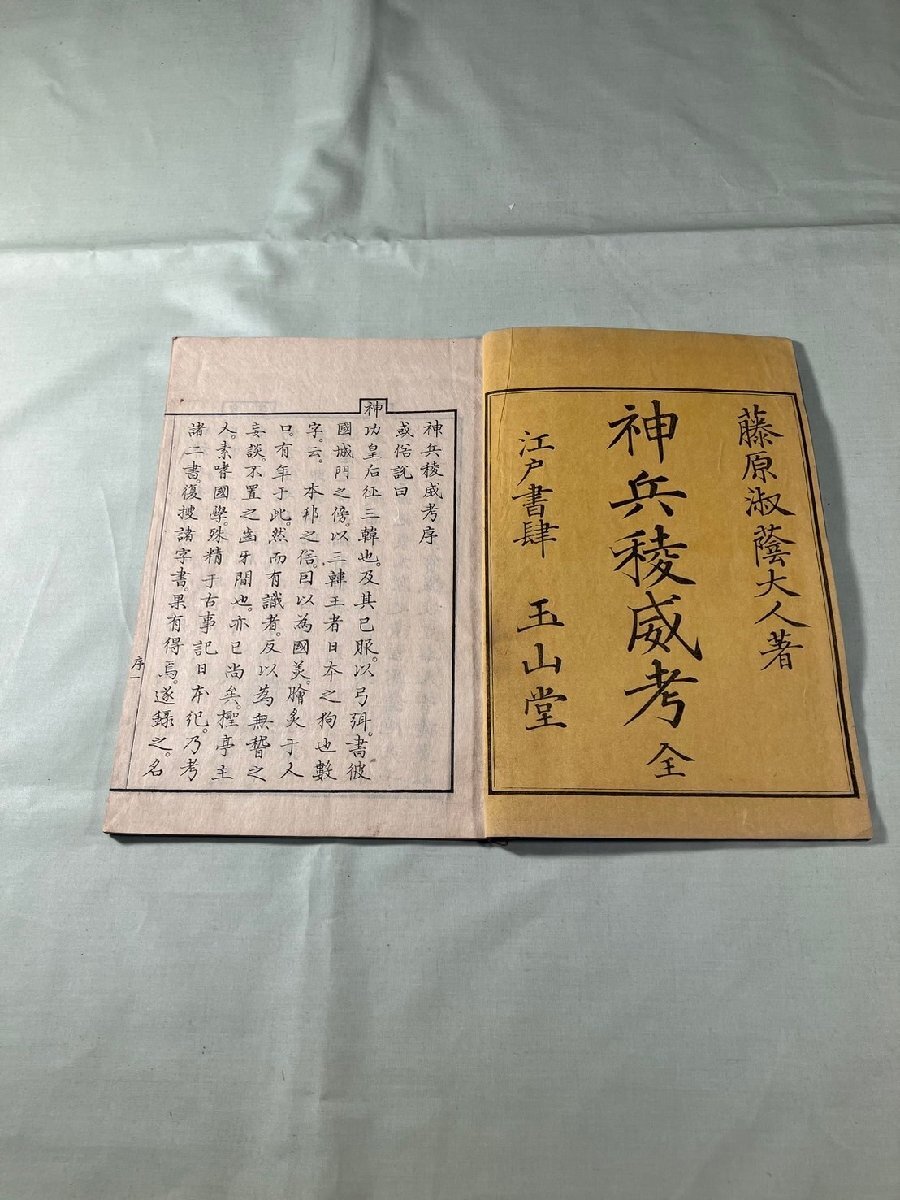 藤原淑蔭大人著
神兵稜威考 全
江戸書肆 玉山堂
神兵稜威考序
或俗説曰
神功皇后征三韓也。及其已服。以弓弭。書彼
國城門之傍。以三韓王者日本之狗也數
字。云。本邦之俗。因以為國美。膾炙于人
口。有年于此。然而有識者。反以為無稽之
妄談。不置之齒牙間也。亦已尚矣。檉亭主
人。素嗜國學。殊精于古事記日本紀。乃考
諸二書。復捜諸字書。果有得焉。遂録之。名
序一